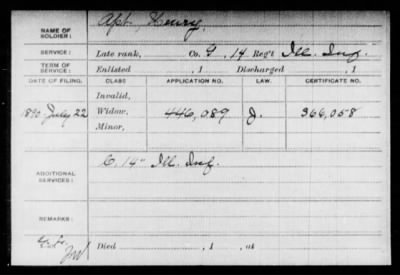 NAME OF SOLDIER: Apt, Henry,
SERVICE: Late rank, Co. G, 14 Reg't Ill. Inf.
TERM OF SERVICE: Enlisted , 1 Discharged , 1
DATE OF FILING. CLASS APPLICATION NO. LAW. CERTIFICATE NO.
Invalid,
1890 July 22 Widow, 446,089 J. 366,058
Minor,
ADDITIONAL SERVICES: C. 14" Ill. Inf.
REMARKS:
Died , 1 , at